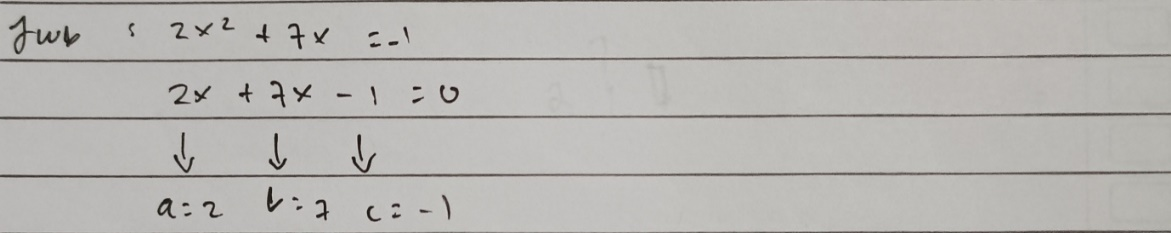 Jwb : 2x² + 7x = -1
2x + 7x - 1 = 0
↓ ↓ ↓
a = 2 b = 7 c = -1